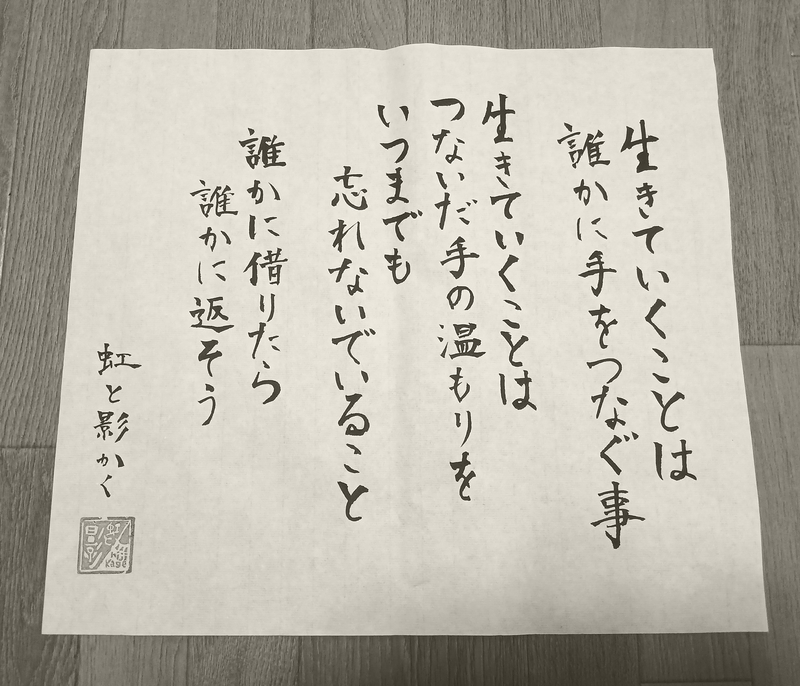 生きていくことは
誰かに手をつなぐ事
生きていくことは
つないだ手の温もりを
いつまでも
忘れないでいること
誰かに借りたら
誰かに返そう
虹と影かく